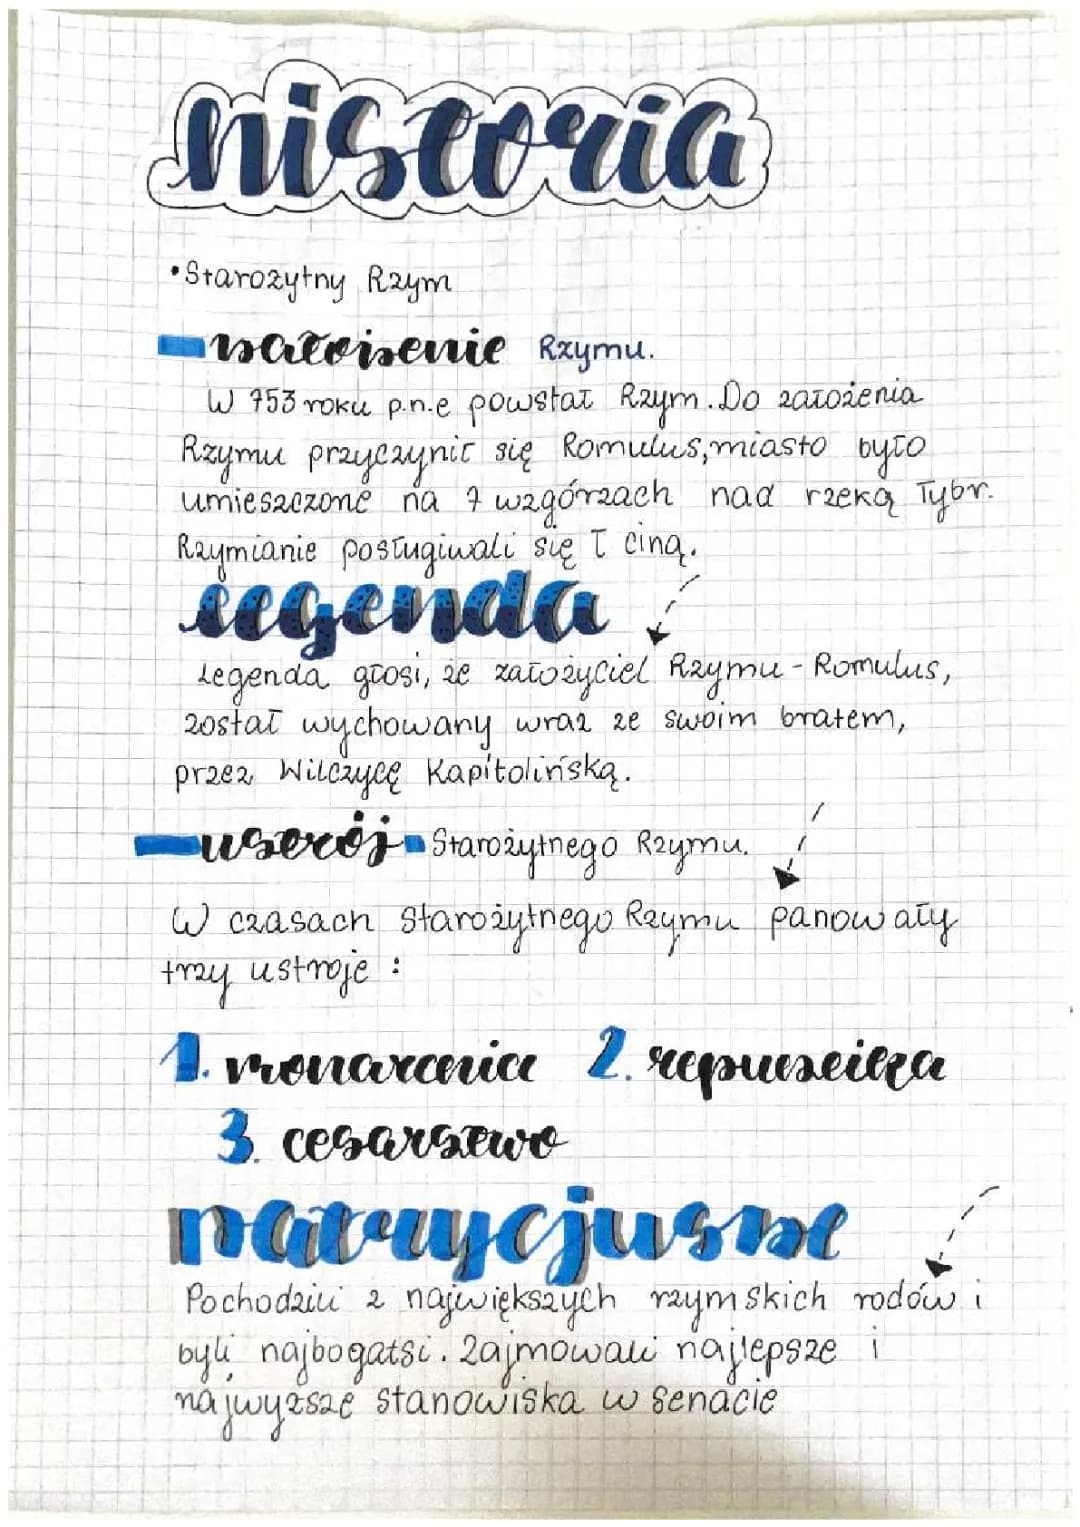 historia
•Starożytny Rzym
założenie Rzymu.
W 753 roku p.n.e powstał Rzym. Do założenia
Rzymu przyczynił się Romulus, miasto było
umieszczone na 7 wzgórzach nad rzeką Tybr.
Rzymianie posługiwali się Łaciną.
legenda
Legenda głosi, że założyciel Rzymu - Romulus,
został wychowany wraz ze swoim bratem,
przez Wilczycę Kapitolińską.
ustrój Starożytnego Rzymu.
W czasach Starożytnego Rzymu panowały
trzy ustroje :
1. monarchia 2. republika
3. cesarstwo
patrycjusze
Pochodzili z największych rzymskich rodów i
byli najbogatsi. Zajmowali najlepsze i
najwyższe stanowiska w senacie